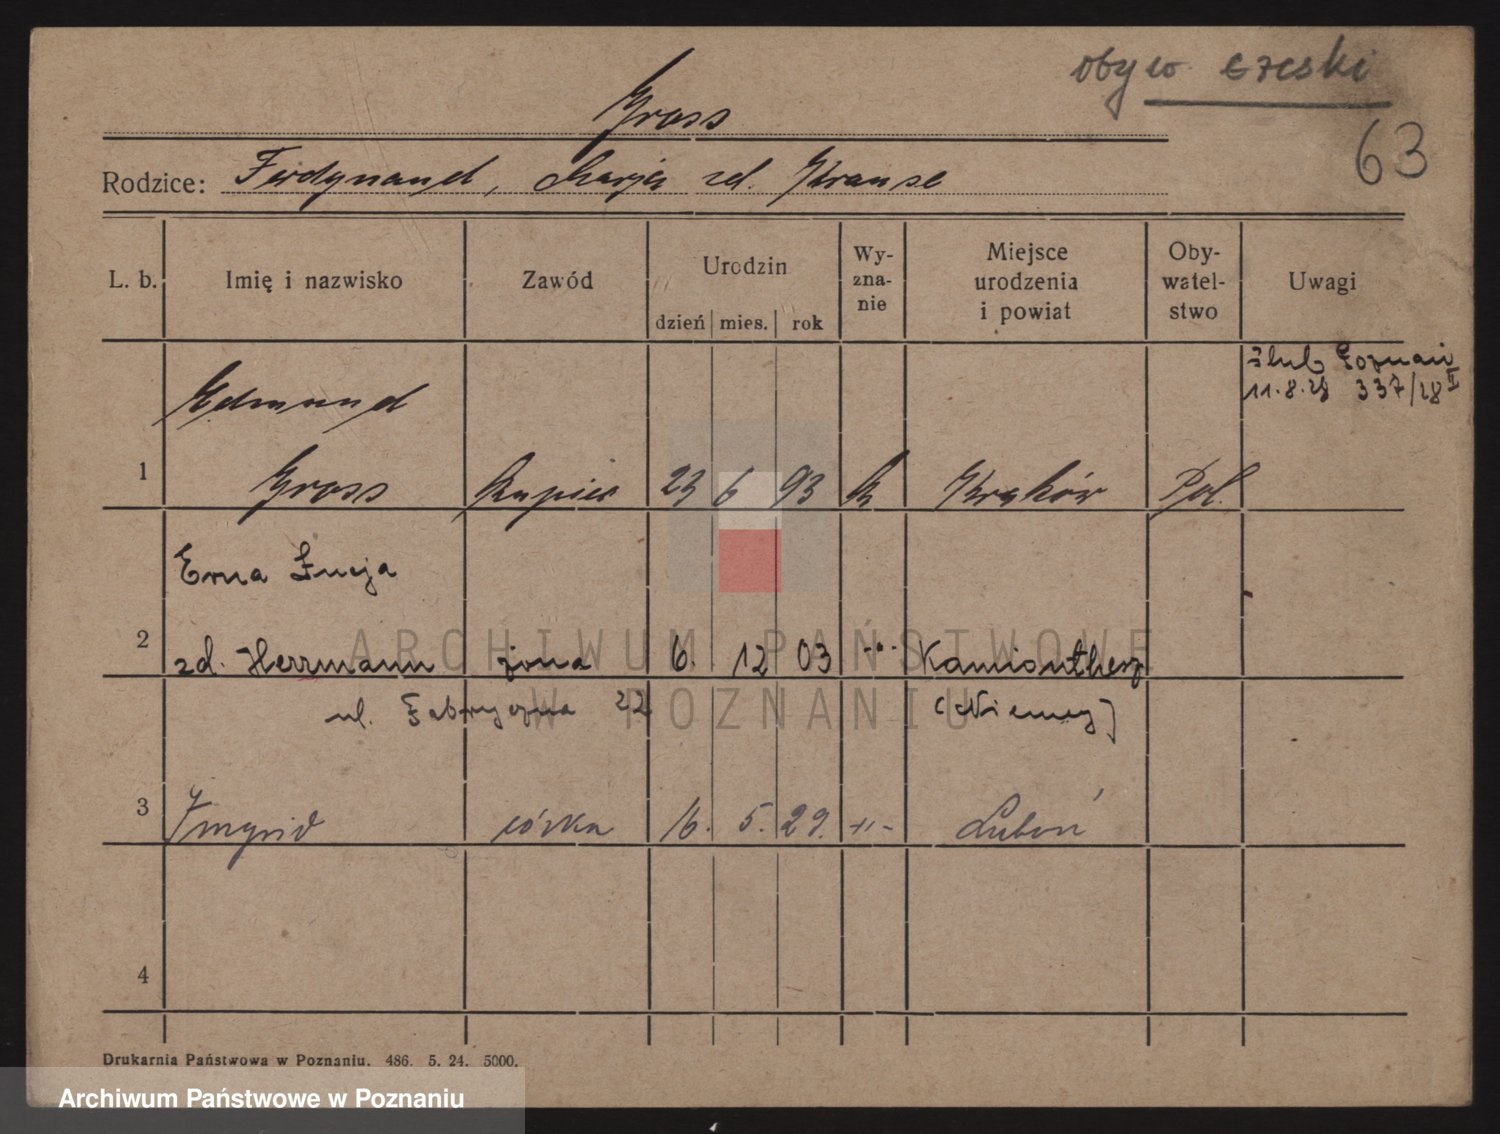 obyw czeski
63
Gross
Rodzice: Ferdynand, Marja zd. Krause
L. b. Imię i nazwisko Zawód Urodzin dzień mies. rok Wy-zna-nie Miejsce urodzenia i powiat Oby-watel-stwo Uwagi
Ślub Poznań
11.8.28 337/28 II
Edmund
1 Gross Kupiec 23 6 93 k Kraków Pol.
Erna Łucja
2 zd. Herrmann żona 6. 12 03 -"-
ul. Fabryczna 22 (Niemcy)
3 Yngrid córka 16. 5. 29. -"- Luboń
4
Drukarnia Państwowa w Poznaniu. 486. 5. 24. 5000.
ARCHIWUM PAŃSTWOWE
W POZNANIU
Archiwum Państwowe w Poznaniu